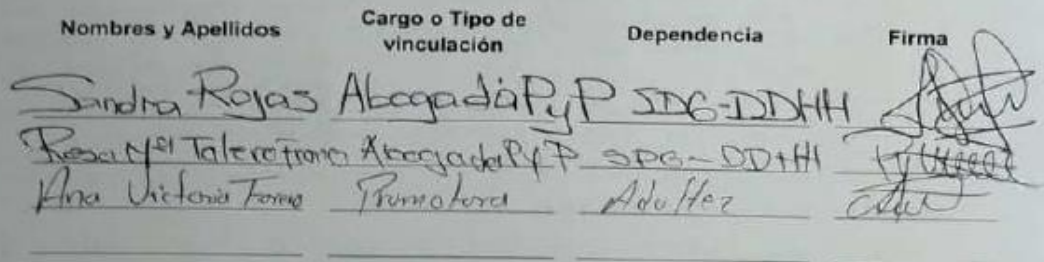 Nombres y Apellidos Cargo o Tipo de vinculación Dependencia Firma
Sandra Rojas Abogada PyP SDG-DDHH
Rosa Abogada PyP SDG-DDHH
Ana Victoria Promotora Adultez